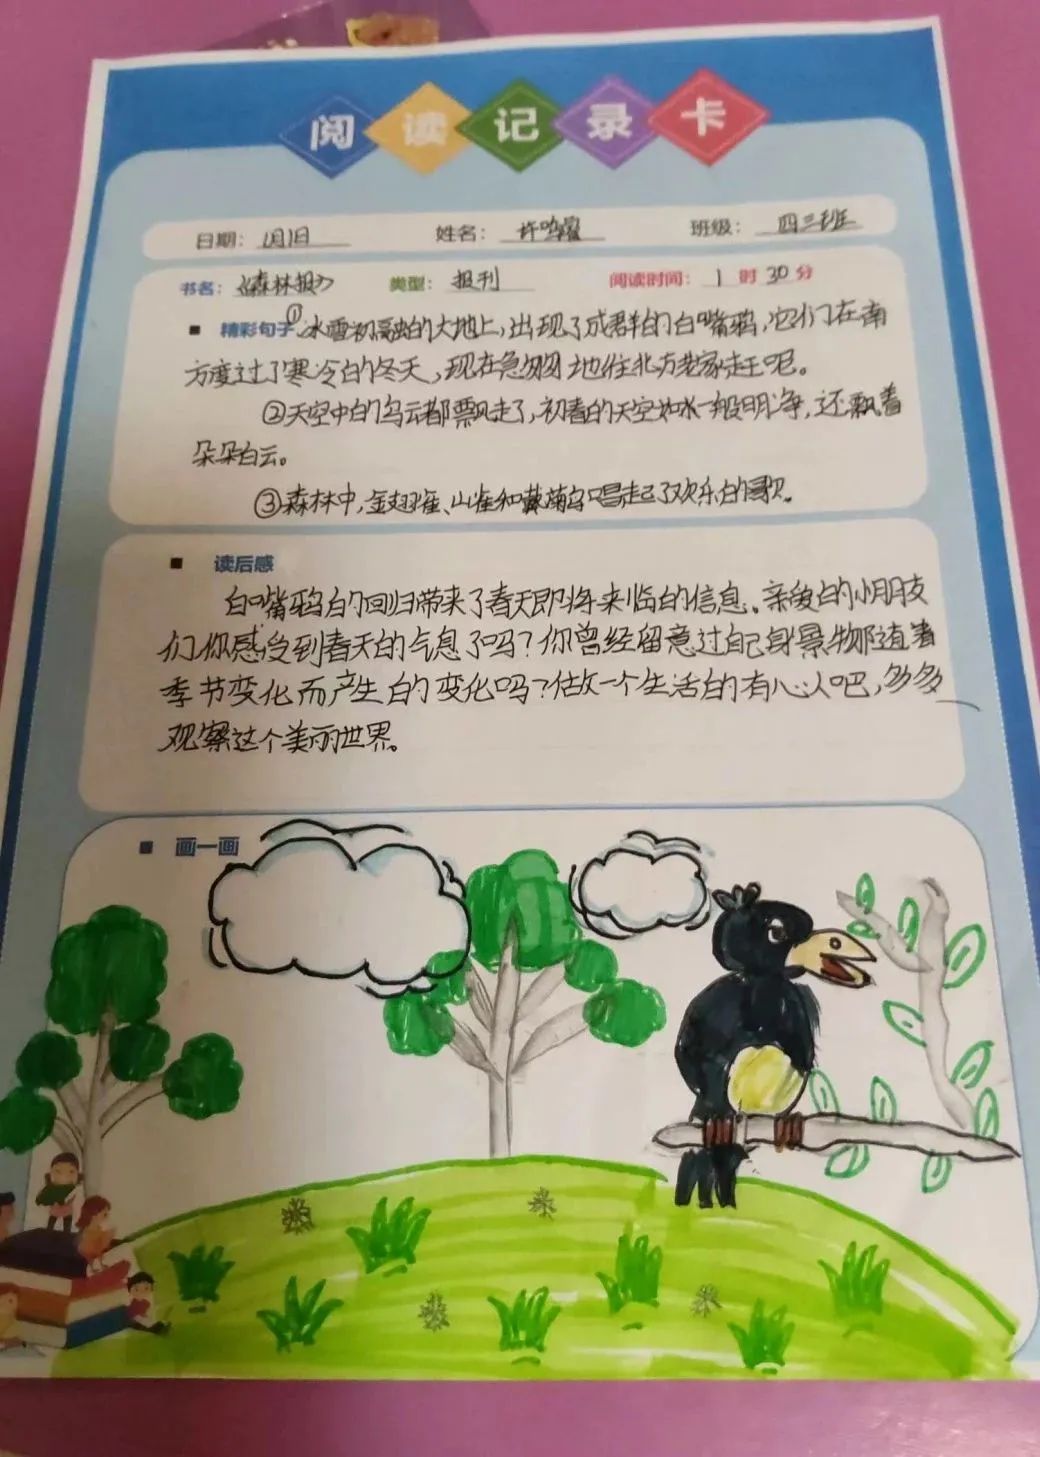 阅读记录卡
日期：1月1日 姓名：许鸣 班级：四三班
书名：《森林报》 类型：报刊 阅读时间：1时30分
精彩句子 ①冰雪初融的大地上，出现了成群的白嘴鸦，它们在南
方度过了寒冷的冬天，现在急匆匆地往北方老家赶呢。
②天空中的乌云都飘走了，初春的天空如水一般明净，还飘着
朵朵白云。
③森林中，金翅雀、山雀和戴菊鸟唱起了欢乐的歌。
读后感
白嘴鸦的回归带来了春天即将来临的信息。亲爱的小朋友
们你感受到春天的气息了吗？你曾经留意过自己身景物随着
季节变化而产生的变化吗？做一个生活的有心人吧，多多
观察这个美丽世界。
画一画